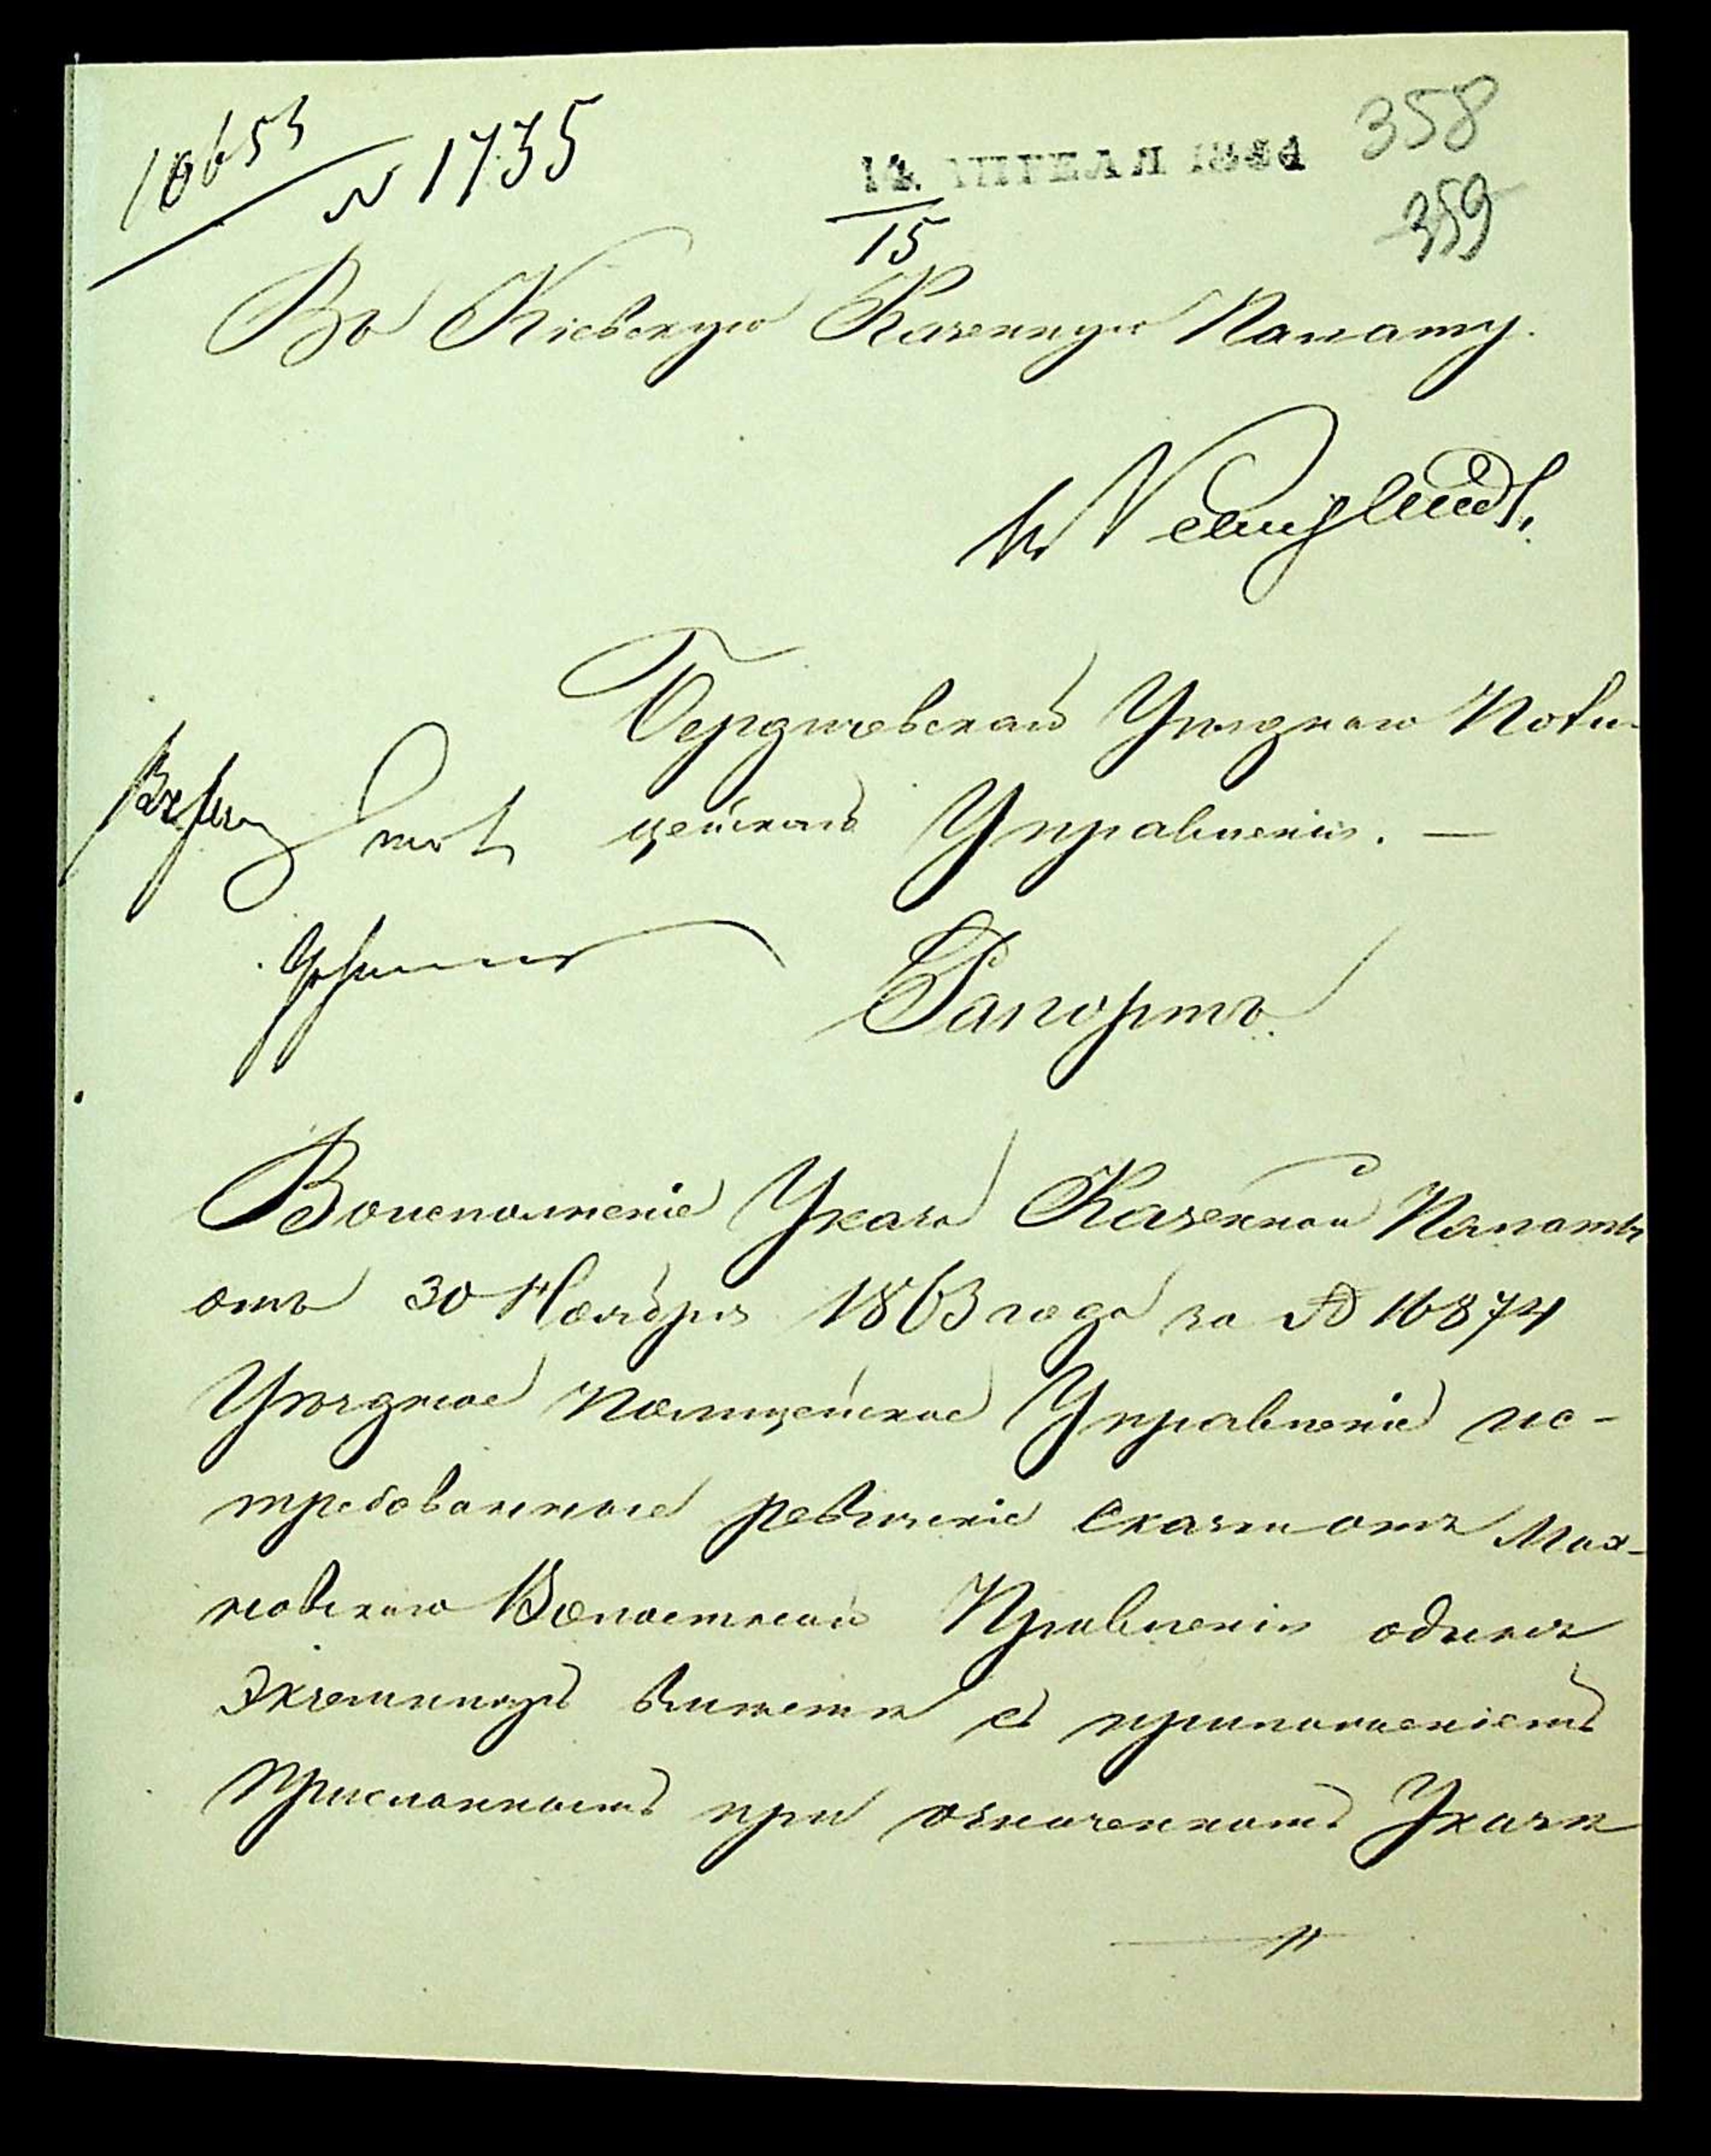 10653
N 1735
14 АПРЕЛЯ 1864
15
358
359
Въ Кіевскую Казенную Палату.
Бердичевскаго Уѣзднаго Поли-
цейскаго Управленія. —
Рапортъ.
Воисполненіе Указа Казенной Палаты
отъ 30 Ноября 1863 года за № 16874
Уѣздное Полицейское Управленіе ис-
требованные ревизскіе сказки отъ Мах-
новскаго Волостнаго Правленія одинъ
Экземпляръ вместѣ съ приложеніемъ
присланномъ при означенномъ Указѣ